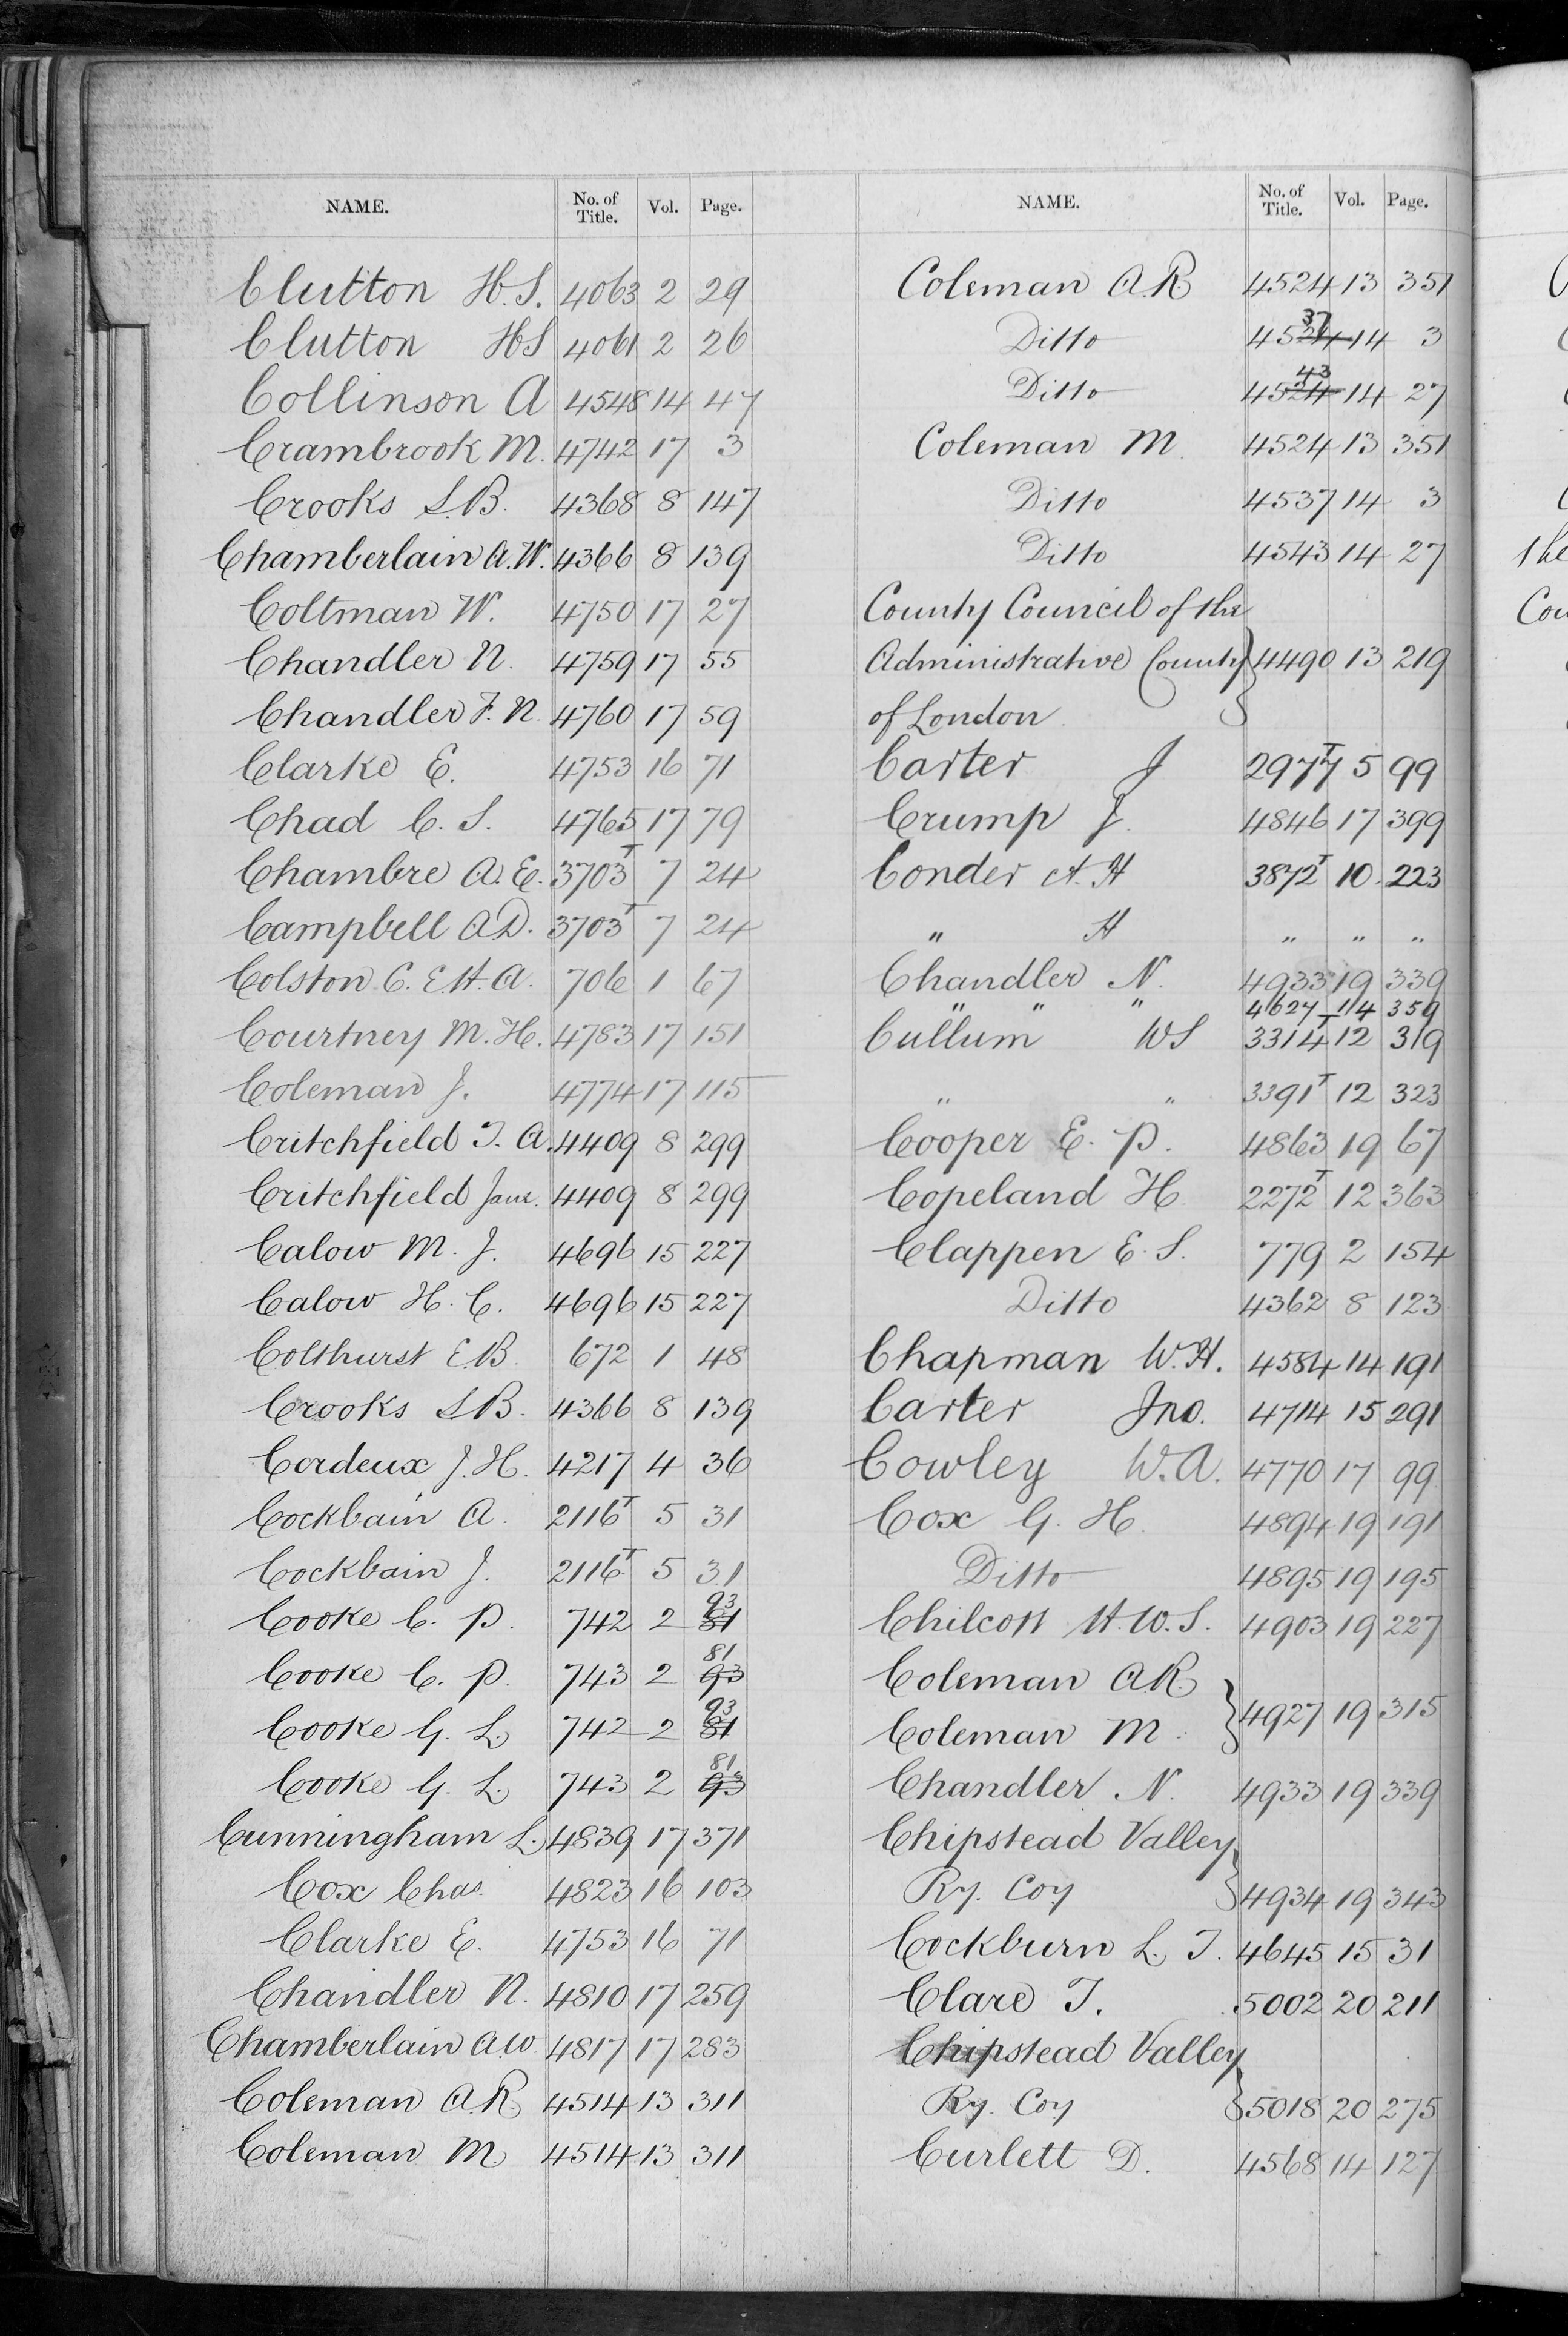 NAME. No. of Title. Vol. Page.
Clutton H.S. 4063 2 29
Clutton HS 4061 2 26
Collinson A 4548 14 47
Crambrook M. 4742 17 3
Crooks S.B. 4368 8 147
Chamberlain A.W. 4366 8 139
Coltman W. 4750 17 27
Chandler N. 4759 17 55
Chandler F. N. 4760 17 59
Clarke E. 4753 16 71
Chad C. S. 4765 17 79
Chambre A. E. 3703T 7 24
Campbell A.D. 3703T 7 24
Colston C. E.H.A. 706 1 67
Courtney M. H. 4783 17 151
Coleman J. 4774 17 115
Critchfield T. A. 4409 8 299
Critchfield Jane. 4409 8 299
Calow M. J. 4696 15 227
Calow H. C. 4696 15 227
Colthurst E.B. 672 1 48
Crooks S.B. 4366 8 139
Cordeux J. H. 4217 4 36
Cockbain A. 2116T 5 31
Cockbain J. 2116T 5 31
Cooke C. P. 742 2 81 93
Cooke C. P. 743 2 93 81
Cooke G. L. 742 2 81 93
Cooke G. L. 743 2 93 81
Cunningham L. 4839 17 371
Cox Chas. 4823 16 103
Clarke E. 4753 16 71
Chandler N. 4810 17 259
Chamberlain A.W. 4817 17 283
Coleman A.R. 4514 13 311
Coleman M. 4514 13 311
NAME. No. of Title. Vol. Page.
Coleman A.R. 4524 13 351
Ditto 4524 37 14 3
Ditto 4524 43 14 27
Coleman M. 4524 13 351
Ditto 4537 14 3
Ditto 4543 14 27
County Council of the
Administrative County 4490 13 219
of London
Carter J 2977T 5 99
Crump J. 4846 17 399
Conder A. H 3872T 10 223
" H " " "
Chandler N. 4933 19 339
" " " 4627 14 359
Cullum WS 3314T 12 319
" " 3391T 12 323
Cooper E. P. 4863 19 67
Copeland H. 2272T 12 363
Clappen E. S. 779 2 154
Ditto 4362 8 123
Chapman W.H. 4584 14 191
Carter Jno. 4714 15 291
Cowley W.A. 4770 17 99
Cox G. H. 4894 19 191
Ditto 4895 19 195
Chilcott H.W.S. 4903 19 227
Coleman A.R.
Coleman M. 4927 19 315
Chandler N. 4933 19 339
Chipstead Valley
Ry. Coy 4934 19 343
Cockburn L. T. 4645 15 31
Clare T. 5002 20 211
Chipstead Valley
Ry. Coy 5018 20 275
Curlett D. 4568 14 127
the